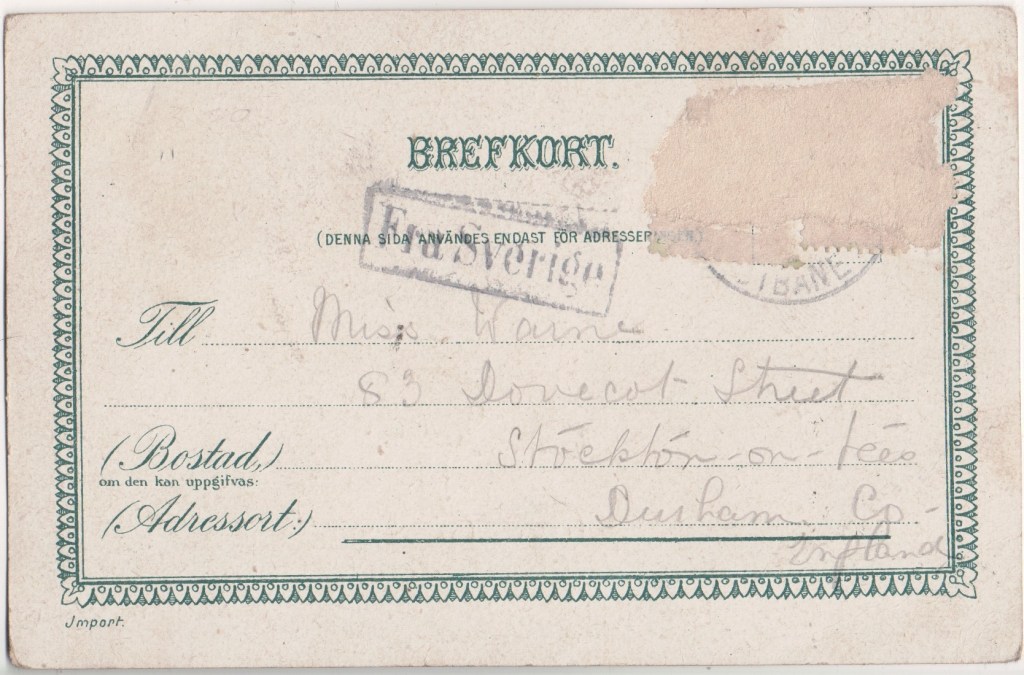 BREFKORT.
Fra Sverige
(DENNA SIDA ANVÄNDES ENDAST FÖR ADRESSERINGEN.)
TBANE
Till Miss. Warne
83 Dovecot Street
(Bostad,) Stockton-on-Tees
om den kan uppgifvas:
(Adressort:) Durham. Co-
England
Import.